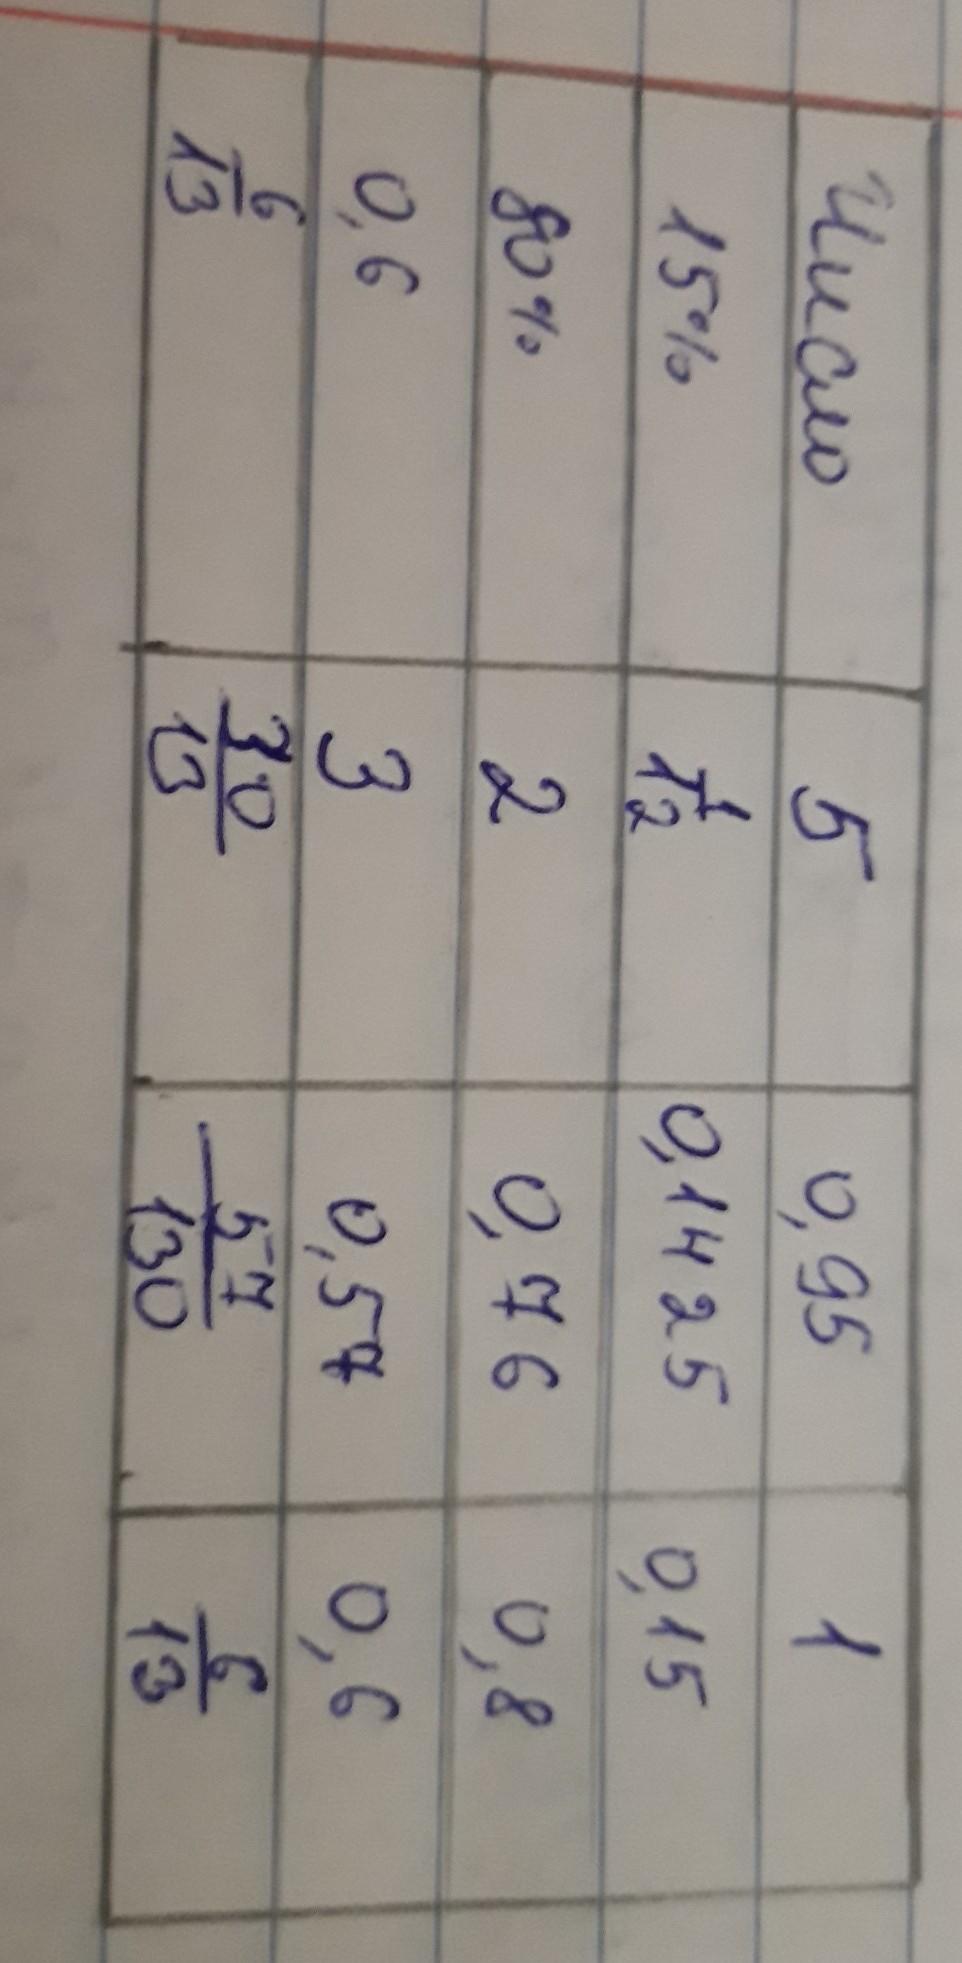 Число 5 0,95 1
15% 1 1/2 0,1425 0,15
80% 2 0,76 0,8
0,6 3 0,57 0,6
6/13 30/13 57/130 6/13